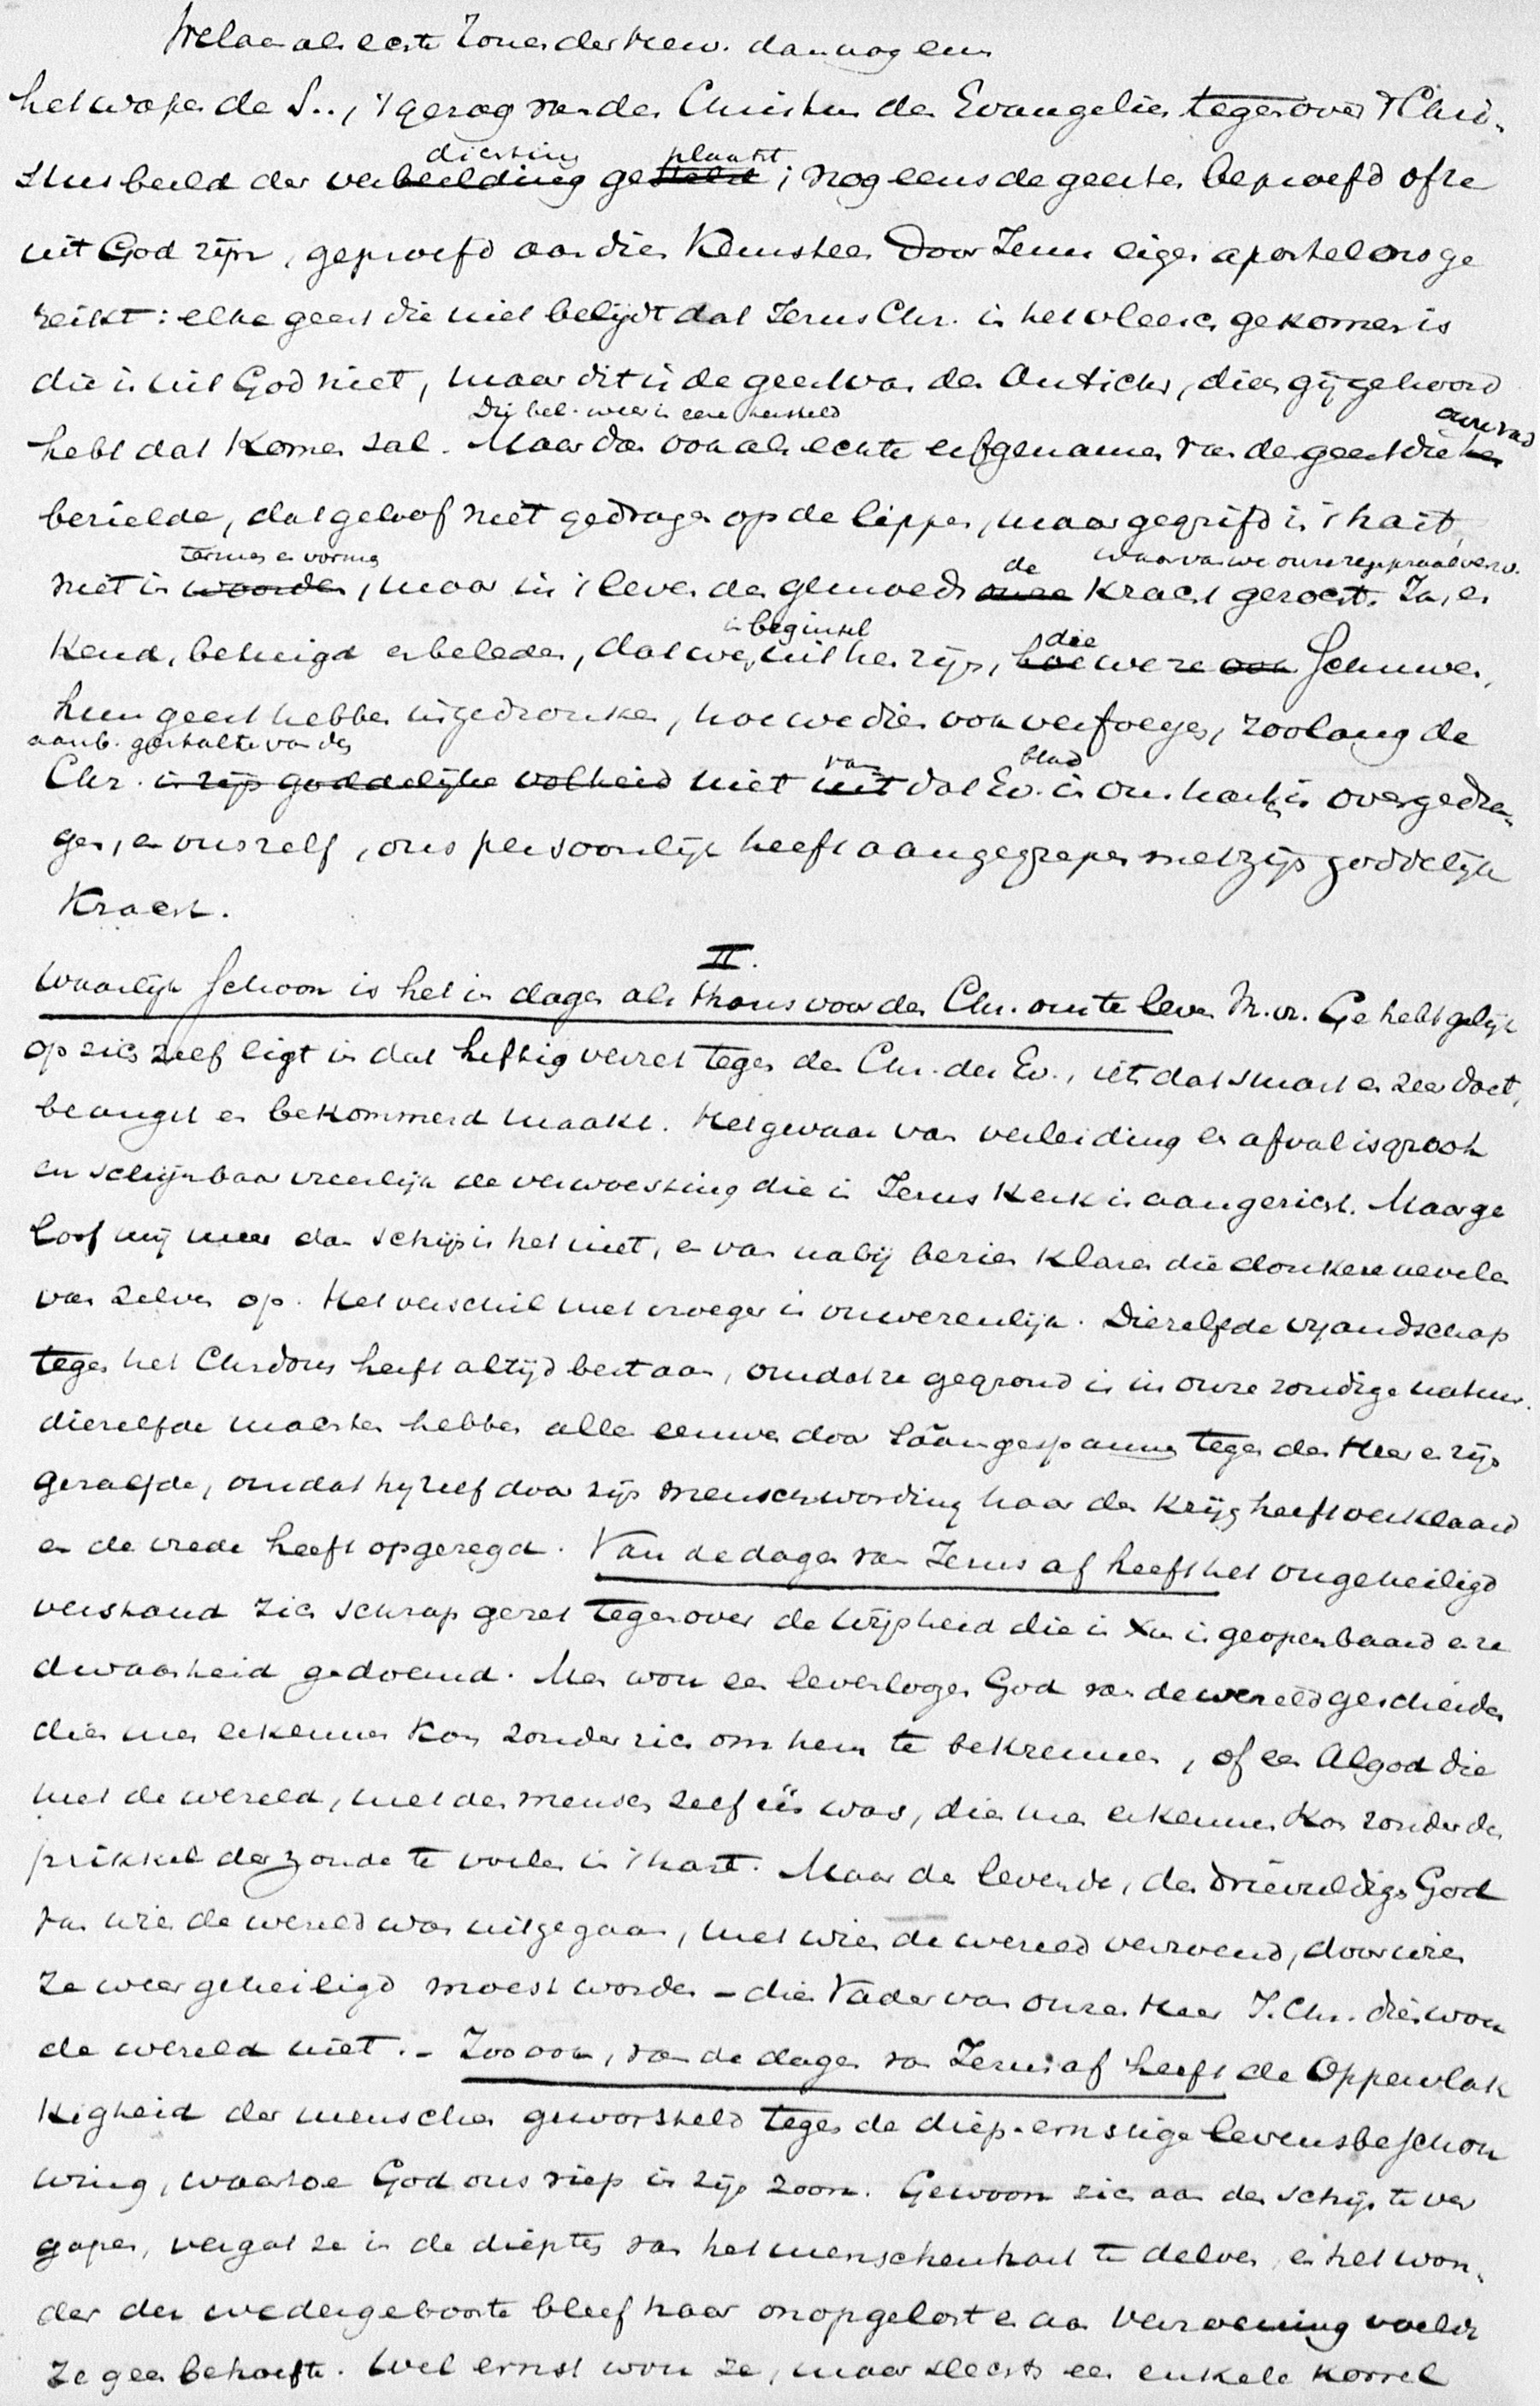 Welaan als echte Zonen der Herv. dan nog eens
het wapen de S.., 't gezag van den Christus der Evangeliën tegenover 't Chri-
stusbeeld der verbeelding dichting gesteld plaatst; nog eens de geesten beproefd of ze
uit God zijn, geproefd aan dien Keursteen door Jezus eigen apostel ons ge
reikt: elke geest die niet belijdt dat Jezus Chr. in het vleesch gekomen is
die is uit God niet, maar dit is de geest van den Antichr, dien gij gehoord
Dij bel. weer in eere hersteld
hebt dat komen zal. Maar dan ook als echte erfgenamen van den geest die hen
bezielde, dat geloof niet gedragen op de lippen, maar gegrifd in 't hart,
termen en vormen de waarvan we onze zegepraal verw.
niet in woorden, maar in 't leven des gemoeds onze kracht gezocht. Ja, er
in beginsel die
kend, betuigd en beleden, dat we, uit hen zijn, hoe we ze ook schuwen,
hun geest hebben ingedronken, hoe we dien ook verfoeyen, zoolang de
aanb. gestalte van den
Chr. in zijn goddelijke volheid niet uit van dat Ev. blad in ons hart is overgedra-
gen, en ons zelf, ons persoonlijk heeft aangegrepen met zijn goddelijke
Kracht.
II.
Waarlijk schoon is het in dagen als thans voor den Chr. om te leven M.vr. Ge hebt gelijk
op zich zelf ligt in dat heftig verzet tegen den Chr. der Ev., iets dat smart en zeer doet,
beangst en bekommerd maakt. Het gevaar van verleiding en afval is groot
en schijnbaar vreeslijk de verwoesting die in Jezus Kerk is aangericht. Maar ge
loof mij meer dan schijn is het niet, en van nabij bezien klaren die donkere nevelen
van zelven op. Het verschil met vroeger is onwezenlijk. Diezelfde vyandschap
tegen het Chrdom heeft altijd bestaan, omdat ze gegrond is in onze zondige natuur.
diezelfde machten hebben alle eeuwen door saamgespannen tegen den Heer en zijn
gezalfde, omdat hy zelf door zijn menschwording haar den krijg heeft verklaard
en de vrede heeft opgezegd. Van de dagen van Jezus af heeft het ongeheiligd
verstand zich schrap gezet tegenover de wijsheid die in Xus is geopenbaard en ze
dwaasheid gedoemd. Men wou een levenloozen God van de wereld gescheiden
dien men erkennen kon zonder zich om hem te bekreunen, of een Algod die
met de wereld, met den mensch zelf één was, dien men erkennen kon zonder den
prikkel der zonde te voelen in 't hart. Maar den levende, den drieëenigen God
van wien de wereld was uitgegaan, met wien de wereld verzoend, door wien
ze weer geheiligd moest worden – dien Vader van onzen Heer J. Chr. dien wou
de wereld niet. – Zoo ook, van de dagen van Jezus af heeft de Oppervlak
kigheid der menschen geworsteld tegen de diep-ernstige levensbeschou
wing, waartoe God ons riep in zijn zoon. Gewoon zich aan den schijn te ver
gapen, vergat ze in de diepten van het menschenhart te delven, en het won-
der der wedergeboorte bleef haar onopgelost en aan verzoening voelde
ze geen behoefte. Wel ernst wou ze, maar slechts een enkele korrel